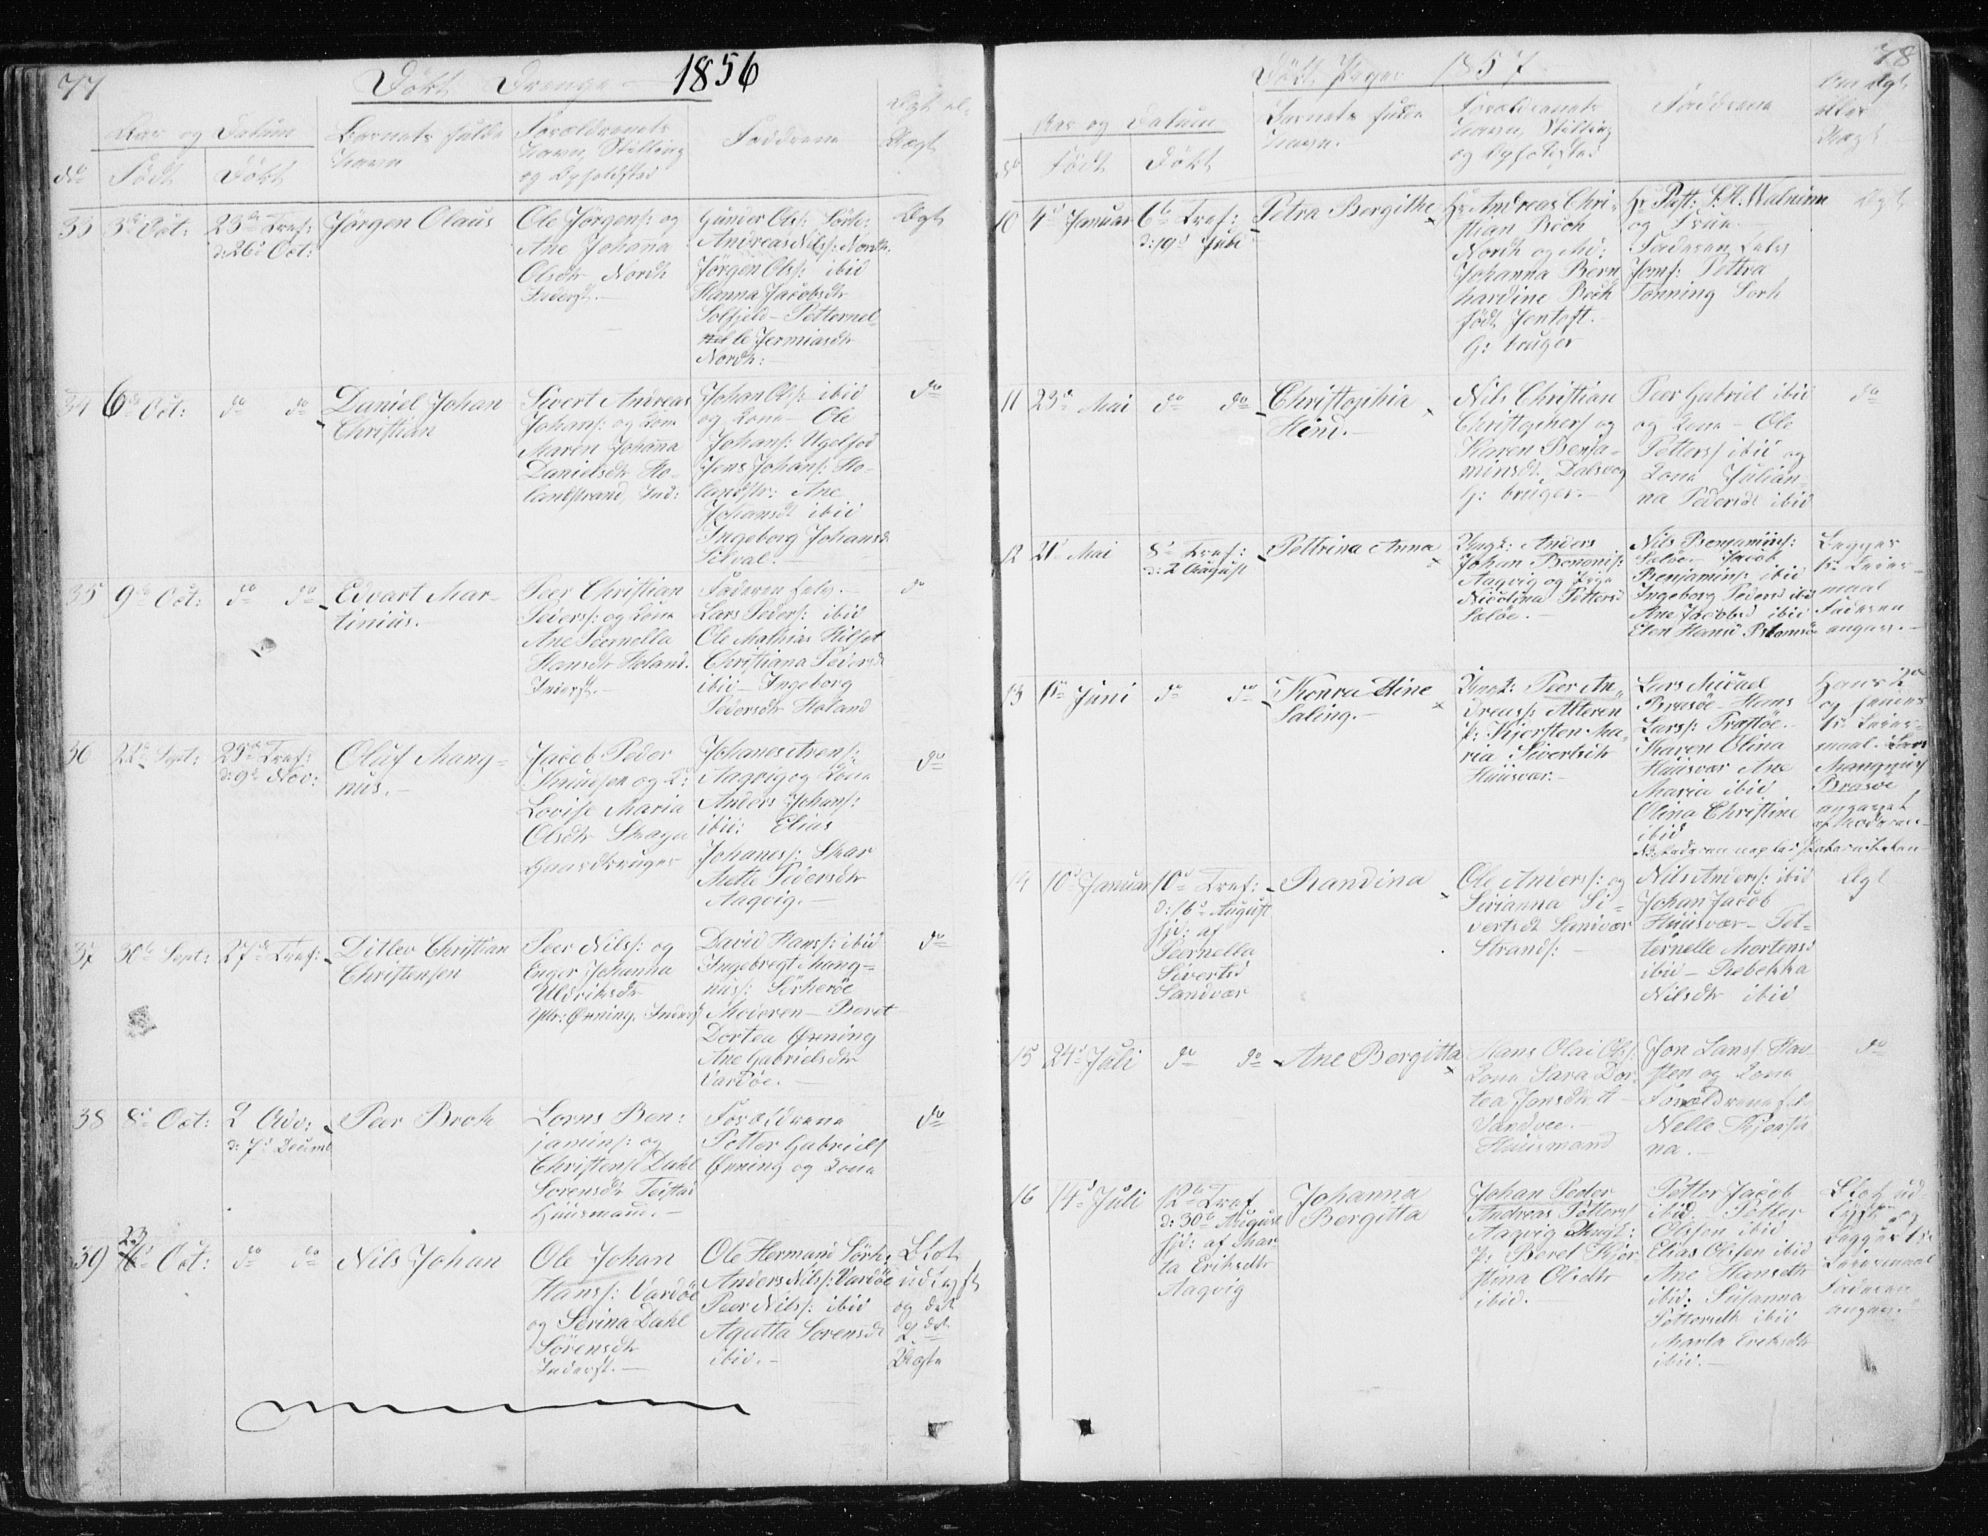 77
Døbt Drenge 1856
No
Aar og Datum
Født
Døbt
Barnets fulde
Navn
Forældrenes
Navn, Stilling
og Opholdsted
Faddrene
Ægt el.
Uægt
33
3de Oct:
23de Tref:
d: 26d Oct:
Jørgen Olaus
Ole Jørgens: og
Ane Johana
Olsdtr Nordh
Inderst.-
Gunder Ols: Sörh:
Andreas Nils: Nordh.
Jørgen Ols: ibid
Hanna Jacobsdtr
Solfjeld - Petternel-
le Jermiasdtr
Nordh:
Ægt
34
6te Oct:
do do
Daniel Johan
Christian
Sivert Andreas
Johans: og Kone
Maren Johana
Danielsdtr Ho-
landstrand, Ind:
Johan Ols: ibid
og Kone - Ole
Johans: Ugelsod
Jens Johans: Ho-
landstr: Ane
Johansdt ibid
Ingeborg Johansd
Silval.-
do
35
9de Oct:
do do
Edvart Mar-
tinius.
Peer Christian
Peders: og Kone
Ane Peernella
Hansdtr Holand.
Inderst.-
Faderen selv.-
Lars Peders: ibid
Ole Mathias Hilset
Christiana Pedersd
ibid - Ingeborg
Pedersdtr Holand
do
36
22de Sept:
25de Tref:
d: 9de Nov:
Oluf Mang-
nus.-
Jacob Peder
Knudsen og K:
Lovise Maria
Olsdtr Skaga
Gaardbruger
Johanes Arens:
Aagvig og Kone
Anders Johans:
ibid: Elias
Johanes: Skar
Mette Pedersdtr
Aagvig.-
do
37
30te Sept:
27de Tref:
Ditlev Christian
Christensen
Peer Nils: og
Enger Johanna
Uldriksdtr
Ønning. Inderst
David Hans: ibid
Ingebregt Mang-
nus: Sörherøe
Moderen - Beret
Dortea Ønning
Ane Gabrielsdtr
Vardøe.-
do
38
8de Oct:
2 Adv:
d: 7d Decemb
Peer Brok
Lorns Ben:
jamins: og
Christense Dahl
Sorensdtr Teistad
Huusmand.-
Forældrene
Petter Gabriels
Ønning og Kone
do
39
23
6te Oct:
do do
Nils Johan
Ole Johan
Hans: Vardøe
og Serina Dahl
Sörensdtr
Inderst.-
Ole Hermand Sörh:
Anders Nils: Vardöe
Peer Nils: ibid
Agutta Sorensdt
ibid.-
Etot
udigft
og det
2det
Uægte
78
Døbt Piger 1857
No
Aar og Datum
Født
Døbt
Barnets fulde
Navn.
Forældrenets
Navn, Stilling
og Opholdsted
Faddrene
Om Ægt
eller
Uægt
10
4d Januar
6te Tref:
d: 19d Juli
Petra Bergithe
Hr Andreas Chri-
stian Bech
Nordh og Md:
Johanna Bern
hardine Bech
født Jentoft.
G: bruger
Hr Past: S.H. Walnum
og Frue.-
Faderen selv
Jomf: Pettra
Tønning Sorh
Ægt
11
23de Mai
do do
Christophia
Hind.-
Nils Christian
Christophers og
Karen Benja-
minsdt. Dalsvog
G: bruger.-
Peer Gabriel ibid
og Kone - Ole
Petters: ibid og
Kone Julian-
na Pedersdt ibid
do
12
21d Mai
8de Tref:
d: 2 August
Pettrina Anna
Ungk: Anders
Johan Benonis:
Aagvig og Pige
Nicolina Pettersd
Soløe.-
Nils Benjamins:
Soløe. Jacob
Benjamins: ibid
Ingeborg Pedersd ibid
Ane Jacobsd ibid
Elen Hansd
Begges
1ste Leier-
maal
Faderen
angav.-
13
1ste Juni
do do
Konra Stine
Saling.-
Ungk: Peer An-
dreas: Alteren
P: Kjersten Ma-
ria Sivertsdtr
Huusvær.-
Lars Micael
Brasøe - Hans
Lars: Prestöe.-
Karen Elina
Huusvær Ane
Maria ibid
Olina Christine
ibid
Hans 2de
og hendes
1ste Leier-
maal. Lars
Mangnus
Brasøe
angavet
af Moderen
14
10d Januar
10de Tref:
d: 16d August
hjd: af
Peernella
Sivertsd
Sandvær
Randina
Ole Anders: og
Sirianna Si-
vertsdt Sandvær
Strands:
Nils Anders: ibid
Johan Jacob
Huusvær - Pet-
ternelle Mortensd
ibid - Rebekka
Nilsdtr ibid
Ægt
15
24d Juli
do do
Ane Bergitta
Hans Olai Ols:
Kone Sara Dor-
tea Jonsdtr
Sandvee.-
Huusmand
Jon Lans: Hav-
sten og Kone
Forældrene
Nelle Kjersti
na.-
do
16
14d Juli
12te Tref
d: 30te August
hjd: af Mar-
ta Eriksdtr
Aagvig
Johanna
Bergitta
Johan Peder
Andreas Petters
Aagvig Ungk:
P: Beret Kjer-
stina Olsdtr
ibid.
Petter Jacob
ibid. Petter
Olssen ibid
Elias Olssen ibid
Ane Hansdtr
ibid: Susanna
Pettersdtr ibid
Marta Eriksdtr
ibid.-
Etot ud-
digft og
Begges 1ste
Leiermaal
Faderen
angav.